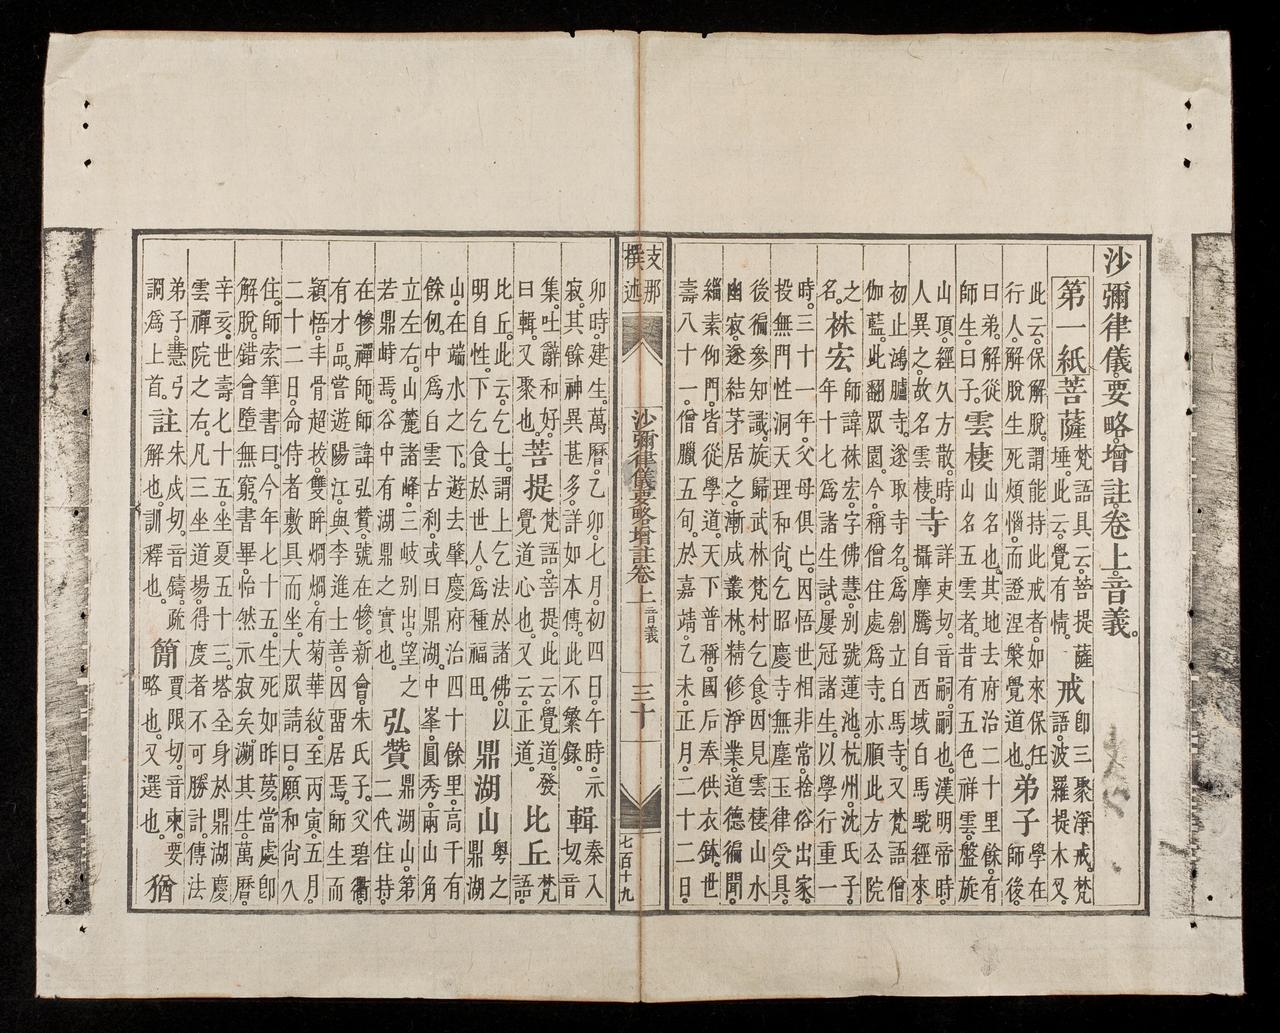 沙彌律儀要略增註。卷上音義。
第一紙菩薩
梵語具云。菩提薩
埵。此云。覺有情。
戒
即三聚淨戒。梵
語。波羅提木叉。
此云。保解脫。謂能持此戒者。如來保任
行人。解脫生死煩惱。而證涅槃覺道也。
弟子
學在
師後。
曰弟。解從
師生。曰子。
雲棲
山名也。其地去府治二十里餘。有
山名五雲者。昔有五色祥雲。盤旋
山頂。經久方散。時
人異之。故名雲棲。
寺
詳吏切。音嗣。嗣也。漢明帝時。
攝摩騰自西域白馬駝經來。
初止鴻臚寺。遂取寺名。為創立白馬寺。又梵語僧
伽藍。此翻眾園。今稱僧住處為寺。亦順此方公院
之
名。
袾宏
師諱袾宏。字佛慧。別號蓮池。杭州。沈氏子。
年十七。為諸生試。屢冠諸生。以學行重一
時。三十一年。父母俱亡。因悟世相非常。捨俗出家。
投無門性洞天理和尚。乞昭慶寺無塵玉律受具。
後徧參知識。旋歸武林梵村乞食。因見雲棲山水
幽寂。遂結茅居之。漸成叢林。精修淨業。道德徧聞。
緇素仰門。皆從學道。天下普稱。國后奉供衣鉢。世
壽八十一。僧臘五旬。於嘉靖乙未。正月。二十二日。
支那
撰述
沙彌律儀要略增註卷上 音義
三十
七百十九
卯時。建生。萬曆。乙卯。七月。初四日。午時。示
寂。其餘神異甚多。詳如本傳。此不繁錄。
輯
秦入
切。音
集。吐辭和好。
曰輯。又聚也。
菩提
梵語。菩提。此云。覺道。發
覺道心也。又云。正道。
比丘
梵
語。
比丘。此云。乞士。謂上乞法於諸佛。以
明自性。下乞食於世人。為種福田。
鼎湖山
粵之
鼎湖
山。在端水之下。遊去肇慶府治四十餘里。高千有
餘仞。中為白雲古剎。或曰鼎湖。中峯。圓秀。兩山角
立左右。山麓諸峰。三岐別出。望之
若鼎峙焉。谷中有湖。鼎之實也。
弘贊
鼎湖山。第
二代住持。
在犙禪師。師諱弘贊。號在犙。新會。朱氏子。父碧衢。
有才品。嘗遊陽江。與李進士善。因畱居焉。師生而
穎悟。丰骨超㧞。雙眸烱烱。有菊華紋。至丙寅。五月。
二十二日。命侍者敷具而坐。大眾請曰。願和尚久
住。師索筆書曰。今年七十五。生死如昨夢。當處即
解脫。錯會墮無窮。書畢怡然示寂矣。溯其生。萬曆。
辛亥。世壽七十五。坐夏五十三。塔全身於鼎湖慶
雲禪院之右。凡三坐道場。得度者不可勝計。傳法
弟子。慧弓
調為上首。
註
朱戍切。音鑄。疏
解也。訓釋也。
簡
賈限切。音柬。要
略也。又選也。
猶